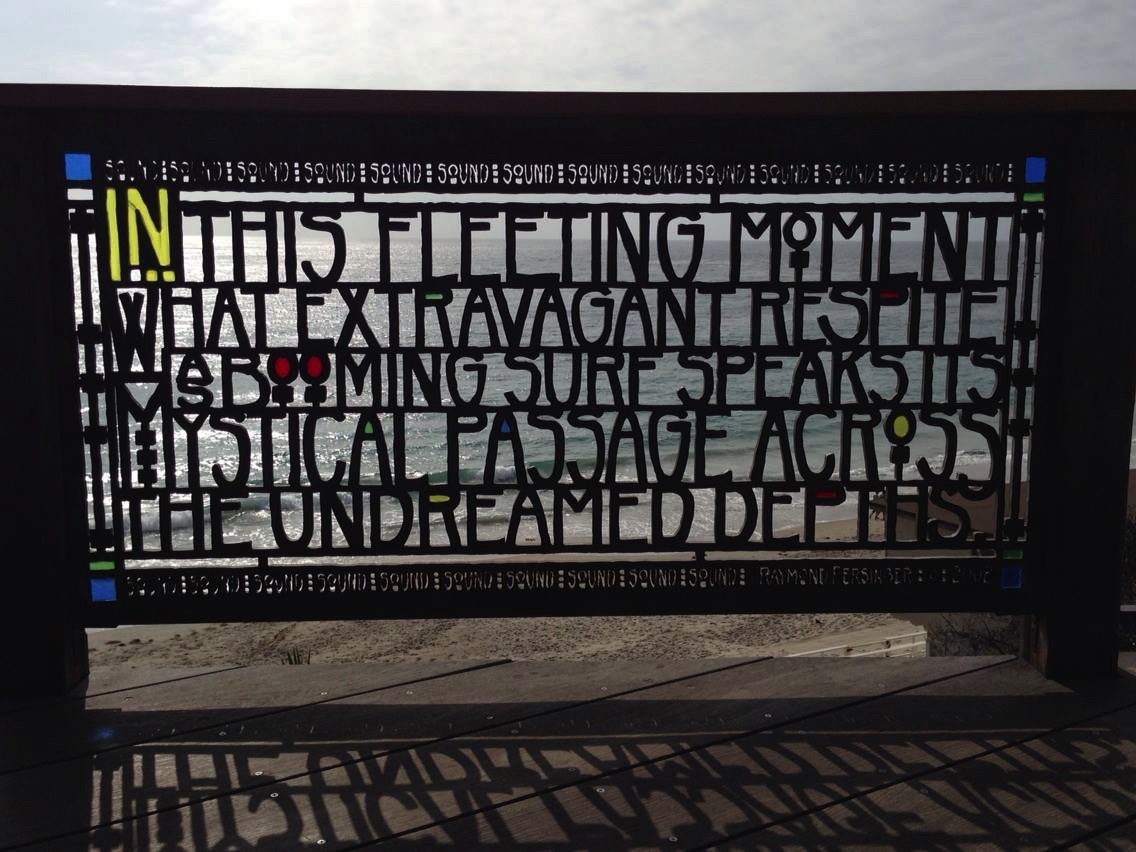 SOUND : SOUND : SOUND : SOUND : SOUND : SOUND : SOUND : SOUND : SOUND : SOUND : SOUND : SOUND : SOUND : SOUND
IN THIS FLEETING MOMENT
WHAT EXTRAVAGANT RESPITE
AS BOOMING SURF SPEAKS ITS
MYSTICAL PASSAGE ACROSS
THE UNDREAMED DEPTHS.
SOUND : SOUND : SOUND : SOUND : SOUND : SOUND : SOUND : SOUND : SOUND : SOUND : RAYMOND PERSINGER